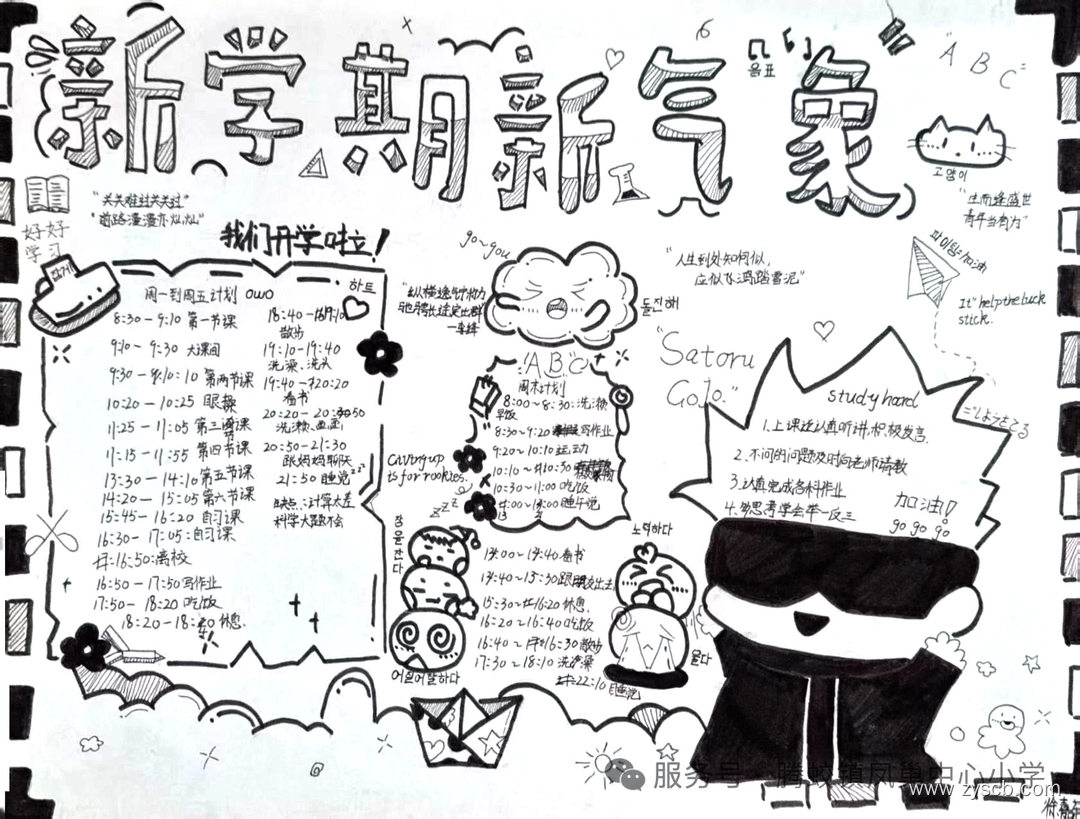 新学期新气象
音표
"A B C"
고양이
好好
学习
"关关难过关关过"
"前路漫漫亦灿灿"
我们开学啦！
go~gou
"人生到处知何似,
应似飞鸿踏雪泥"
"生而逢盛世
青年当有为"
파이팅=加油
It" help the luck
stick.
돌진해
"Satoru
GoJo."
하트
周一到周五计划 owo
8:30-9:10 第一节课
9:10-9:30 大课间
9:30-10:10 第两节课
10:20-10:25 眼操
11:25-11:05 第三节课
11:15-11:55 第四节课
13:30-14:10 第五节课
14:20-15:05 第六节课
15:45-16:20 自习课
16:30-17:05:自习课
16:50:离校
16:50-17:50 写作业
17:50-18:20 吃饭
18:20-18:40 休息.
18:40-19:10
散步
19:10-19:40
洗澡、洗头
19:40-20:20
看书
20:20-20:50
洗漱、画画
20:50-21:30
跟妈妈聊天
21:50 睡觉
zzz
缺点:计算太差
科学大题不会
一车纬
ABC
周末计划
8:00~8:30:洗漱
早饭
8:30~9:20 写作业
9:20~10:10 运动
10:10~10:30
10:30~11:00 吃饭
睡午觉
13:00~13:40 看书
13:40~15:30 跟朋友出去
15:30~16:20 休息.
16:20~16:40 吃饭
16:40~16:30 散步
17:30~18:10 洗澡
22:10 睡觉
is for rookies.
zzz
어질어질하다
노력하다
울다
study hard
1.上课还认真听讲,积极发言.
2.不问的问题及时问老师请教
3.认真完成各科作业
4.多思考学会举一反三
加油!!
go go go
服务号 腾蛟镇凤巢中心小学
www.zyscb.com